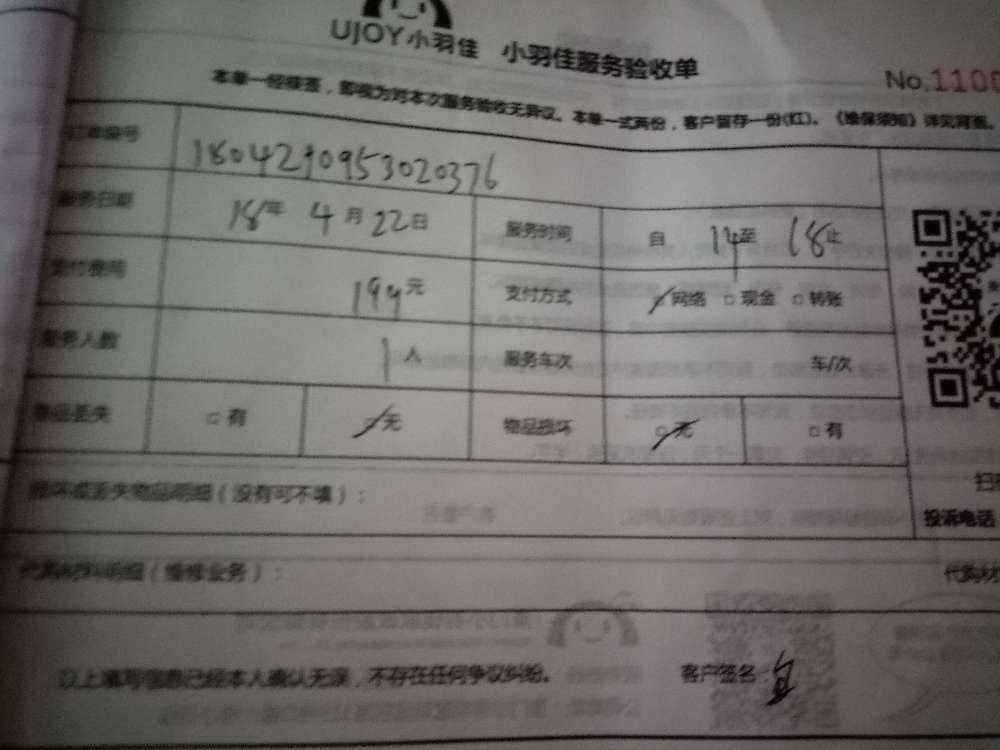 UJOY小羽佳 小羽佳服务验收单
No.1100
本单一经接签，即视为对本次服务验收无异议。本单一式两份，客户留存一份(红)。《维保须知》详见背面。
订单编号 1804290953020376
服务日期 18年 4月22日 服务时间 自 14至 18止
支付费用 199元 支付方式 网络 现金 转账
服务人数 1人 服务车次 车/次
物品丢失 有 无 物品损坏 无 有
损坏或丢失物品明细（没有可不填）：
扫
投诉电话
代购材料明细（维修业务）： 代购材
以上填写信息已经本人确认无误，不存在任何争议纠纷。 客户签名：